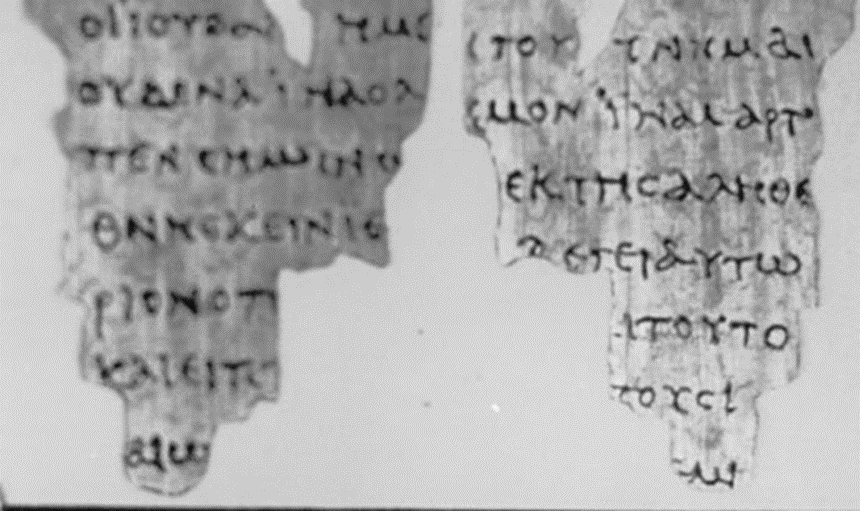 ΟΙΙΟΥΔΑΙ ΗΜΕ
ΟΥΔΕΝΑΙΝΑΟΛ
ΠΕΝϹΗΜΑΙΝΩ
ΘΝΗϹΚΕΙΝΙϹ
ΡΙΟΝΟΠ
ΚΑΙΕΙΠ
ΑΙΩ
ΤΟΥΤ ΝΗΜΑΙ
ϹΜΟΝΙΝΑΜΑΡΤΥ
ΕΚΤΗϹΑΛΗΘΕ
ΛΕΓΕΙΑΥΤΩ
ΑΙΤΟΥΤΟ
ΤΟΥϹΙ
ΜΙ